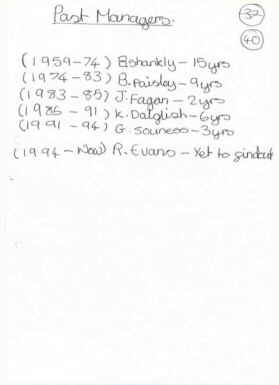 Past Managers.
32
40
(1959-74) B.shankly - 15yrs
(1974-83) B.Paisley - 9yrs
(1983-85) J.Fagan - 2yrs
(1985-91) K.Dalglish - 6yrs
(1991-94) G.souness - 3yrs
(1994-Now) R.Evans - Yet to findout